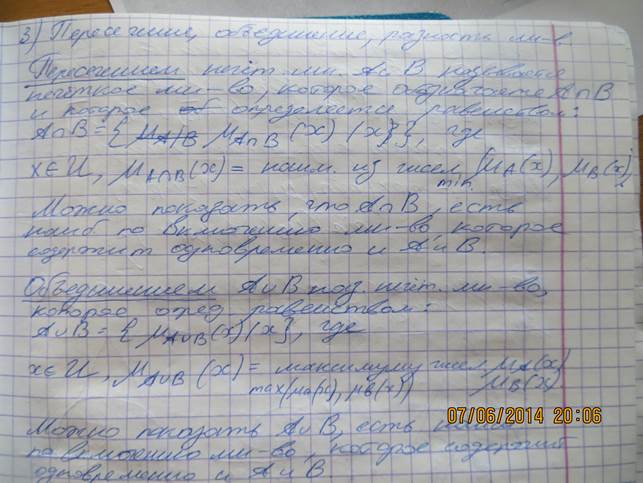 3) Пересечение, объединение, разность мн-в.
Пересечением нечёт. мн. A и B называется
нечёткое мн-во, которое обозначается A∩B
и которое определяется равенством:
A∩B = { μA∩B (x) (x)}, где
x∈U, μA∩B(x) = наим. из чисел min [μA(x), μB(x)]
Можно показать, что A∩B, есть
наиб по включению мн-во, которое
содержит одновременно и A и B.
Объединением A∪B наз. нечёт. мн-во,
которое опред. равенством:
A∪B = { μA∪B(x) (x)}, где
x∈U, μA∪B (x) = максимуму чисел μA(x)
max(μA(x), μB(x)) μB(x)
07/06/2014 20:06
Можно показать A∪B, есть
по включению мн-во, которое содержит
одновременно и A и B.